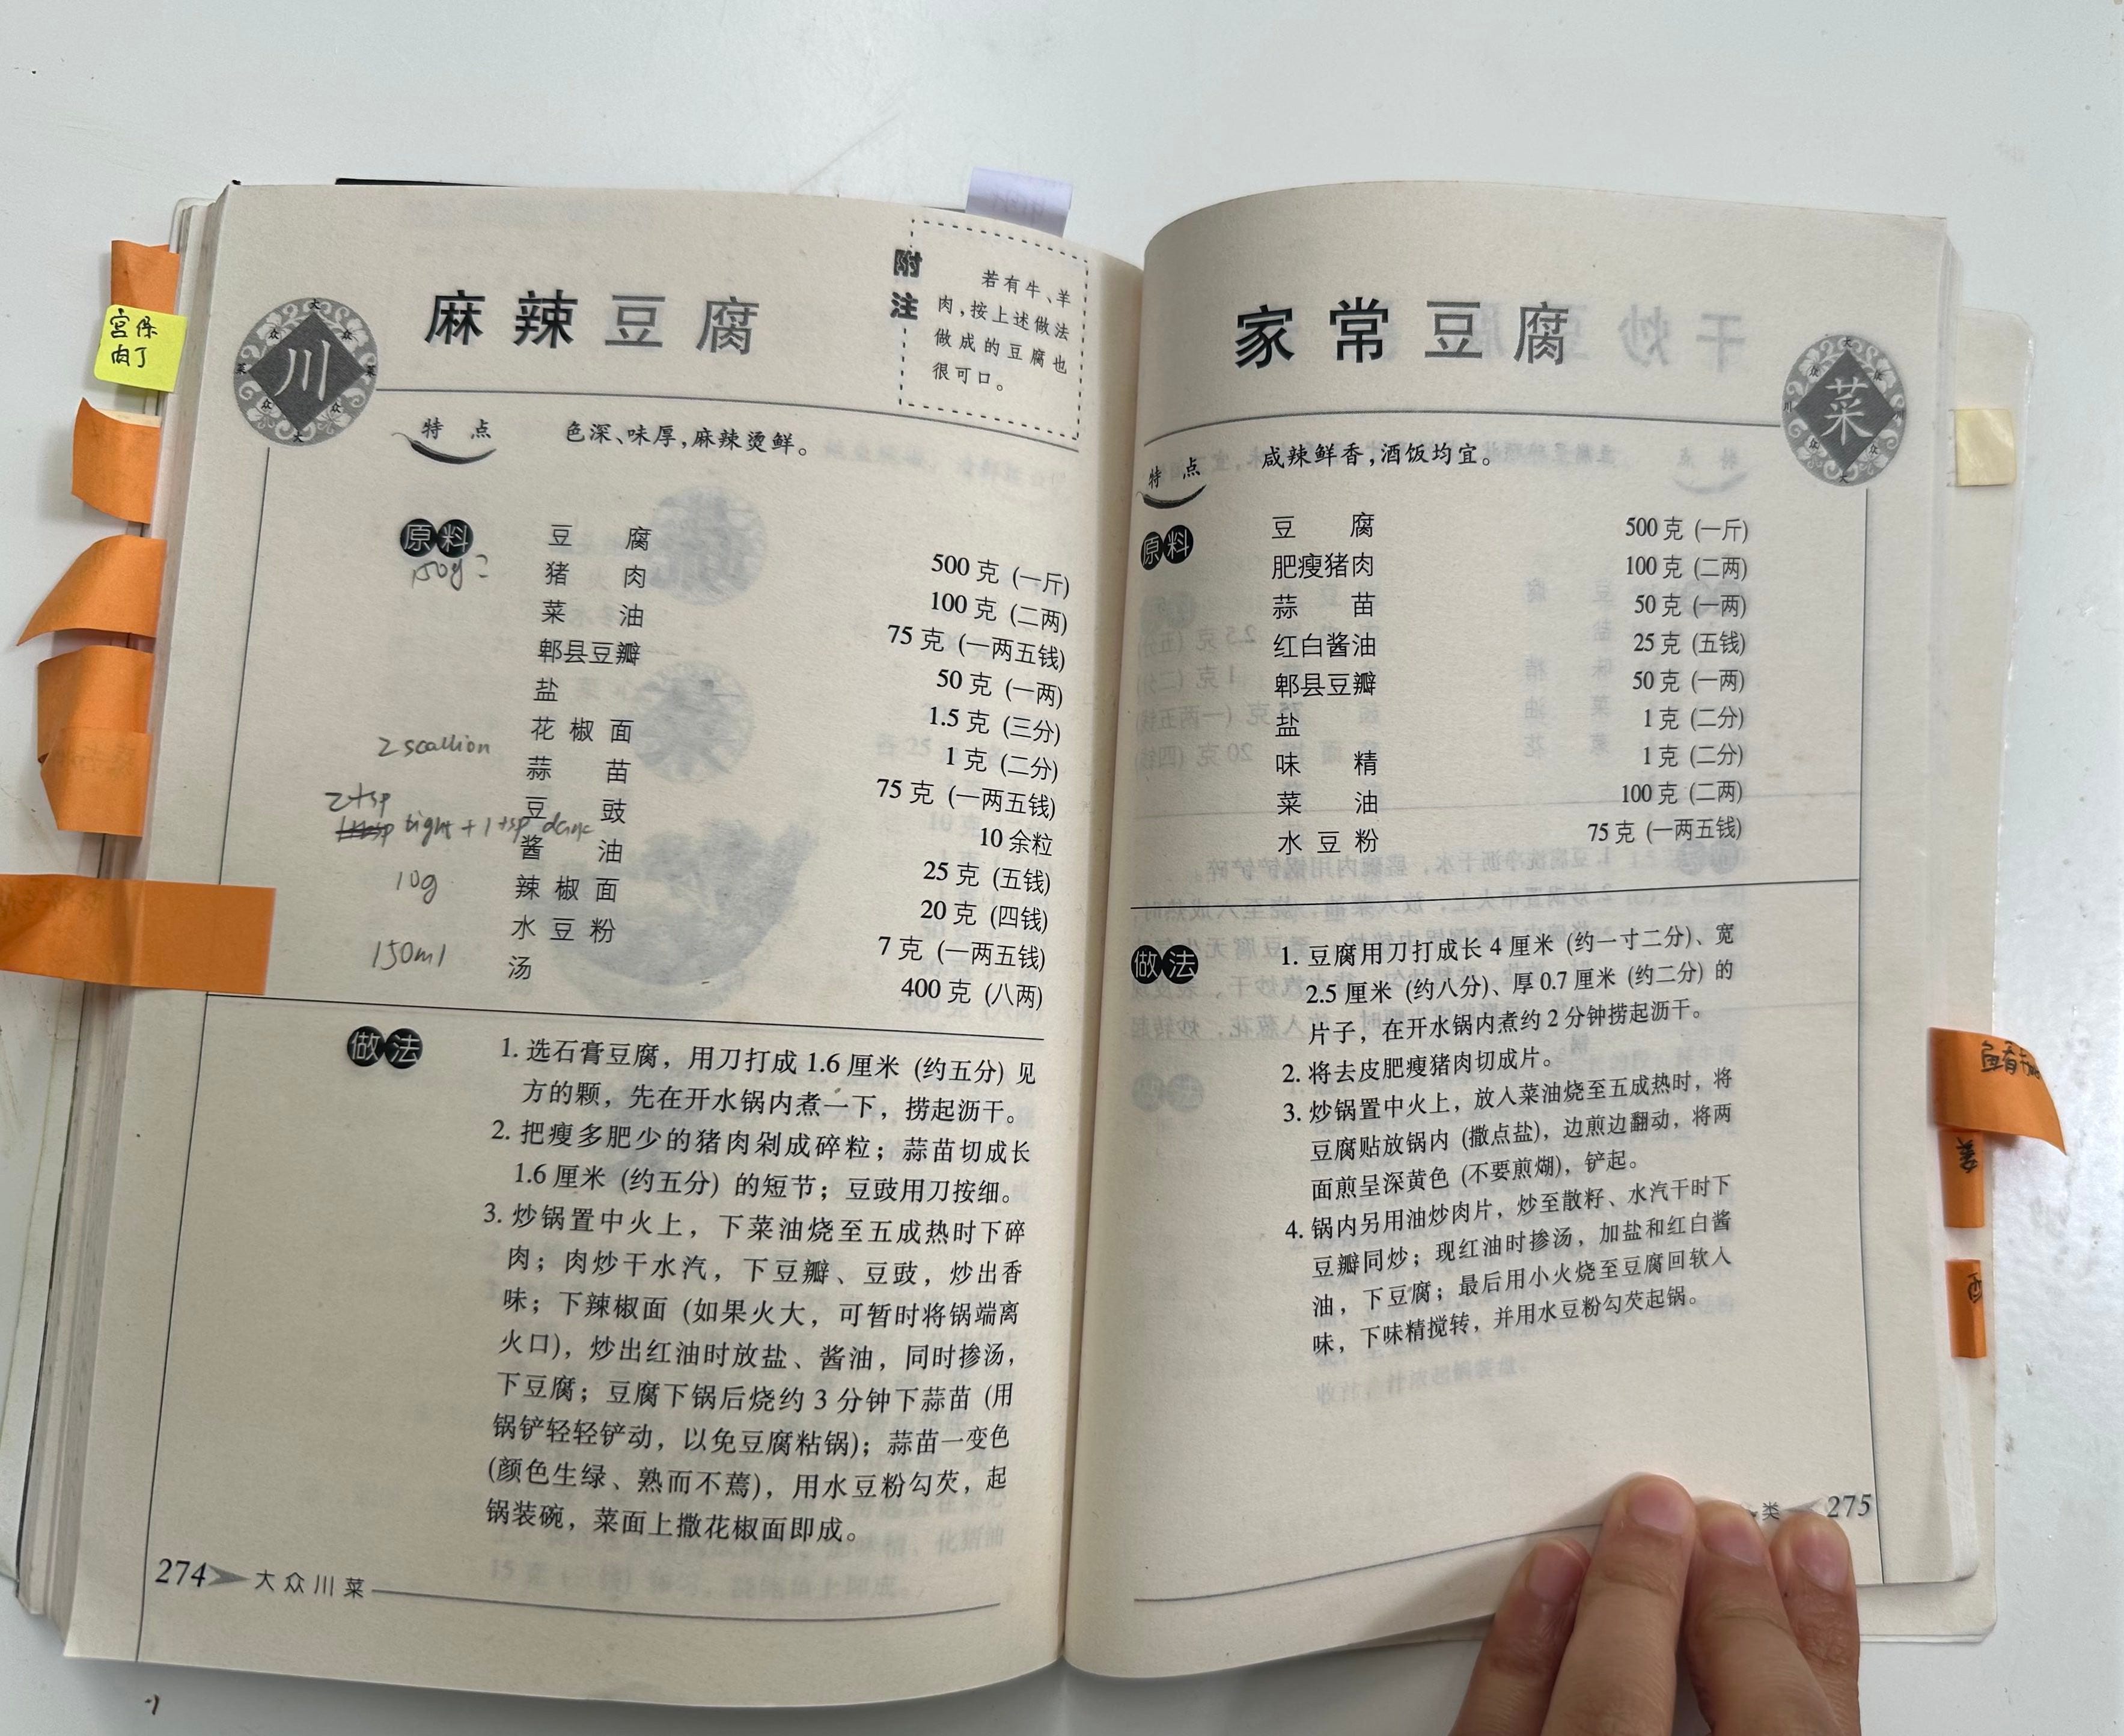 麻辣豆腐
附注
若有牛、羊
肉,按上述做法
做成的豆腐也
很可口。
川
大众川菜
特点 色深、味厚,麻辣烫鲜。
原料
豆腐 500克 (一斤)
150g? 猪肉 100克 (二两)
菜油 75克 (一两五钱)
郫县豆瓣 50克 (一两)
盐 1.5克 (三分)
花椒面 1克 (二分)
2 scallion 蒜苗 75克 (一两五钱)
豆豉 10余粒
2 tsp light + 1 tsp dark 酱油 25克 (五钱)
10g 辣椒面 20克 (四钱)
水豆粉 7克 (一两五钱)
150ml 汤 400克 (八两)
做法
1. 选石膏豆腐，用刀打成1.6厘米 (约五分) 见
方的颗，先在开水锅内煮一下，捞起沥干。
2. 把瘦多肥少的猪肉剁成碎粒；蒜苗切成长
1.6厘米 (约五分) 的短节；豆豉用刀按细。
3. 炒锅置中火上，下菜油烧至五成热时下碎
肉；肉炒干水汽，下豆瓣、豆豉，炒出香
味；下辣椒面 (如果火大，可暂时将锅端离
火口)，炒出红油时放盐、酱油，同时掺汤，
下豆腐；豆腐下锅后烧约3分钟下蒜苗 (用
锅铲轻轻铲动，以免豆腐粘锅)；蒜苗一变色
(颜色生绿、熟而不蔫)，用水豆粉勾芡，起
锅装碗，菜面上撒花椒面即成。
274 大众川菜
宫保
肉丁
家常豆腐
菜
特点 咸辣鲜香,酒饭均宜。
原料
豆腐 500克 (一斤)
肥瘦猪肉 100克 (二两)
蒜苗 50克 (一两)
红白酱油 25克 (五钱)
郫县豆瓣 50克 (一两)
盐 1克 (二分)
味精 1克 (二分)
菜油 100克 (二两)
水豆粉 75克 (一两五钱)
做法
1. 豆腐用刀打成长4厘米 (约一寸二分)、宽
2.5厘米 (约八分)、厚0.7厘米 (约二分) 的
片子，在开水锅内煮约2分钟捞起沥干。
2. 将去皮肥瘦猪肉切成片。
3. 炒锅置中火上，放入菜油烧至五成热时，将
豆腐贴放锅内 (撒点盐)，边煎边翻动，将两
面煎呈深黄色 (不要煎煳)，铲起。
4. 锅内另用油炒肉片，炒至散籽、水汽干时下
豆瓣同炒；现红油时掺汤，加盐和红白酱
油，下豆腐；最后用小火烧至豆腐回软入
味，下味精搅转，并用水豆粉勾芡起锅。
类 275
鱼香